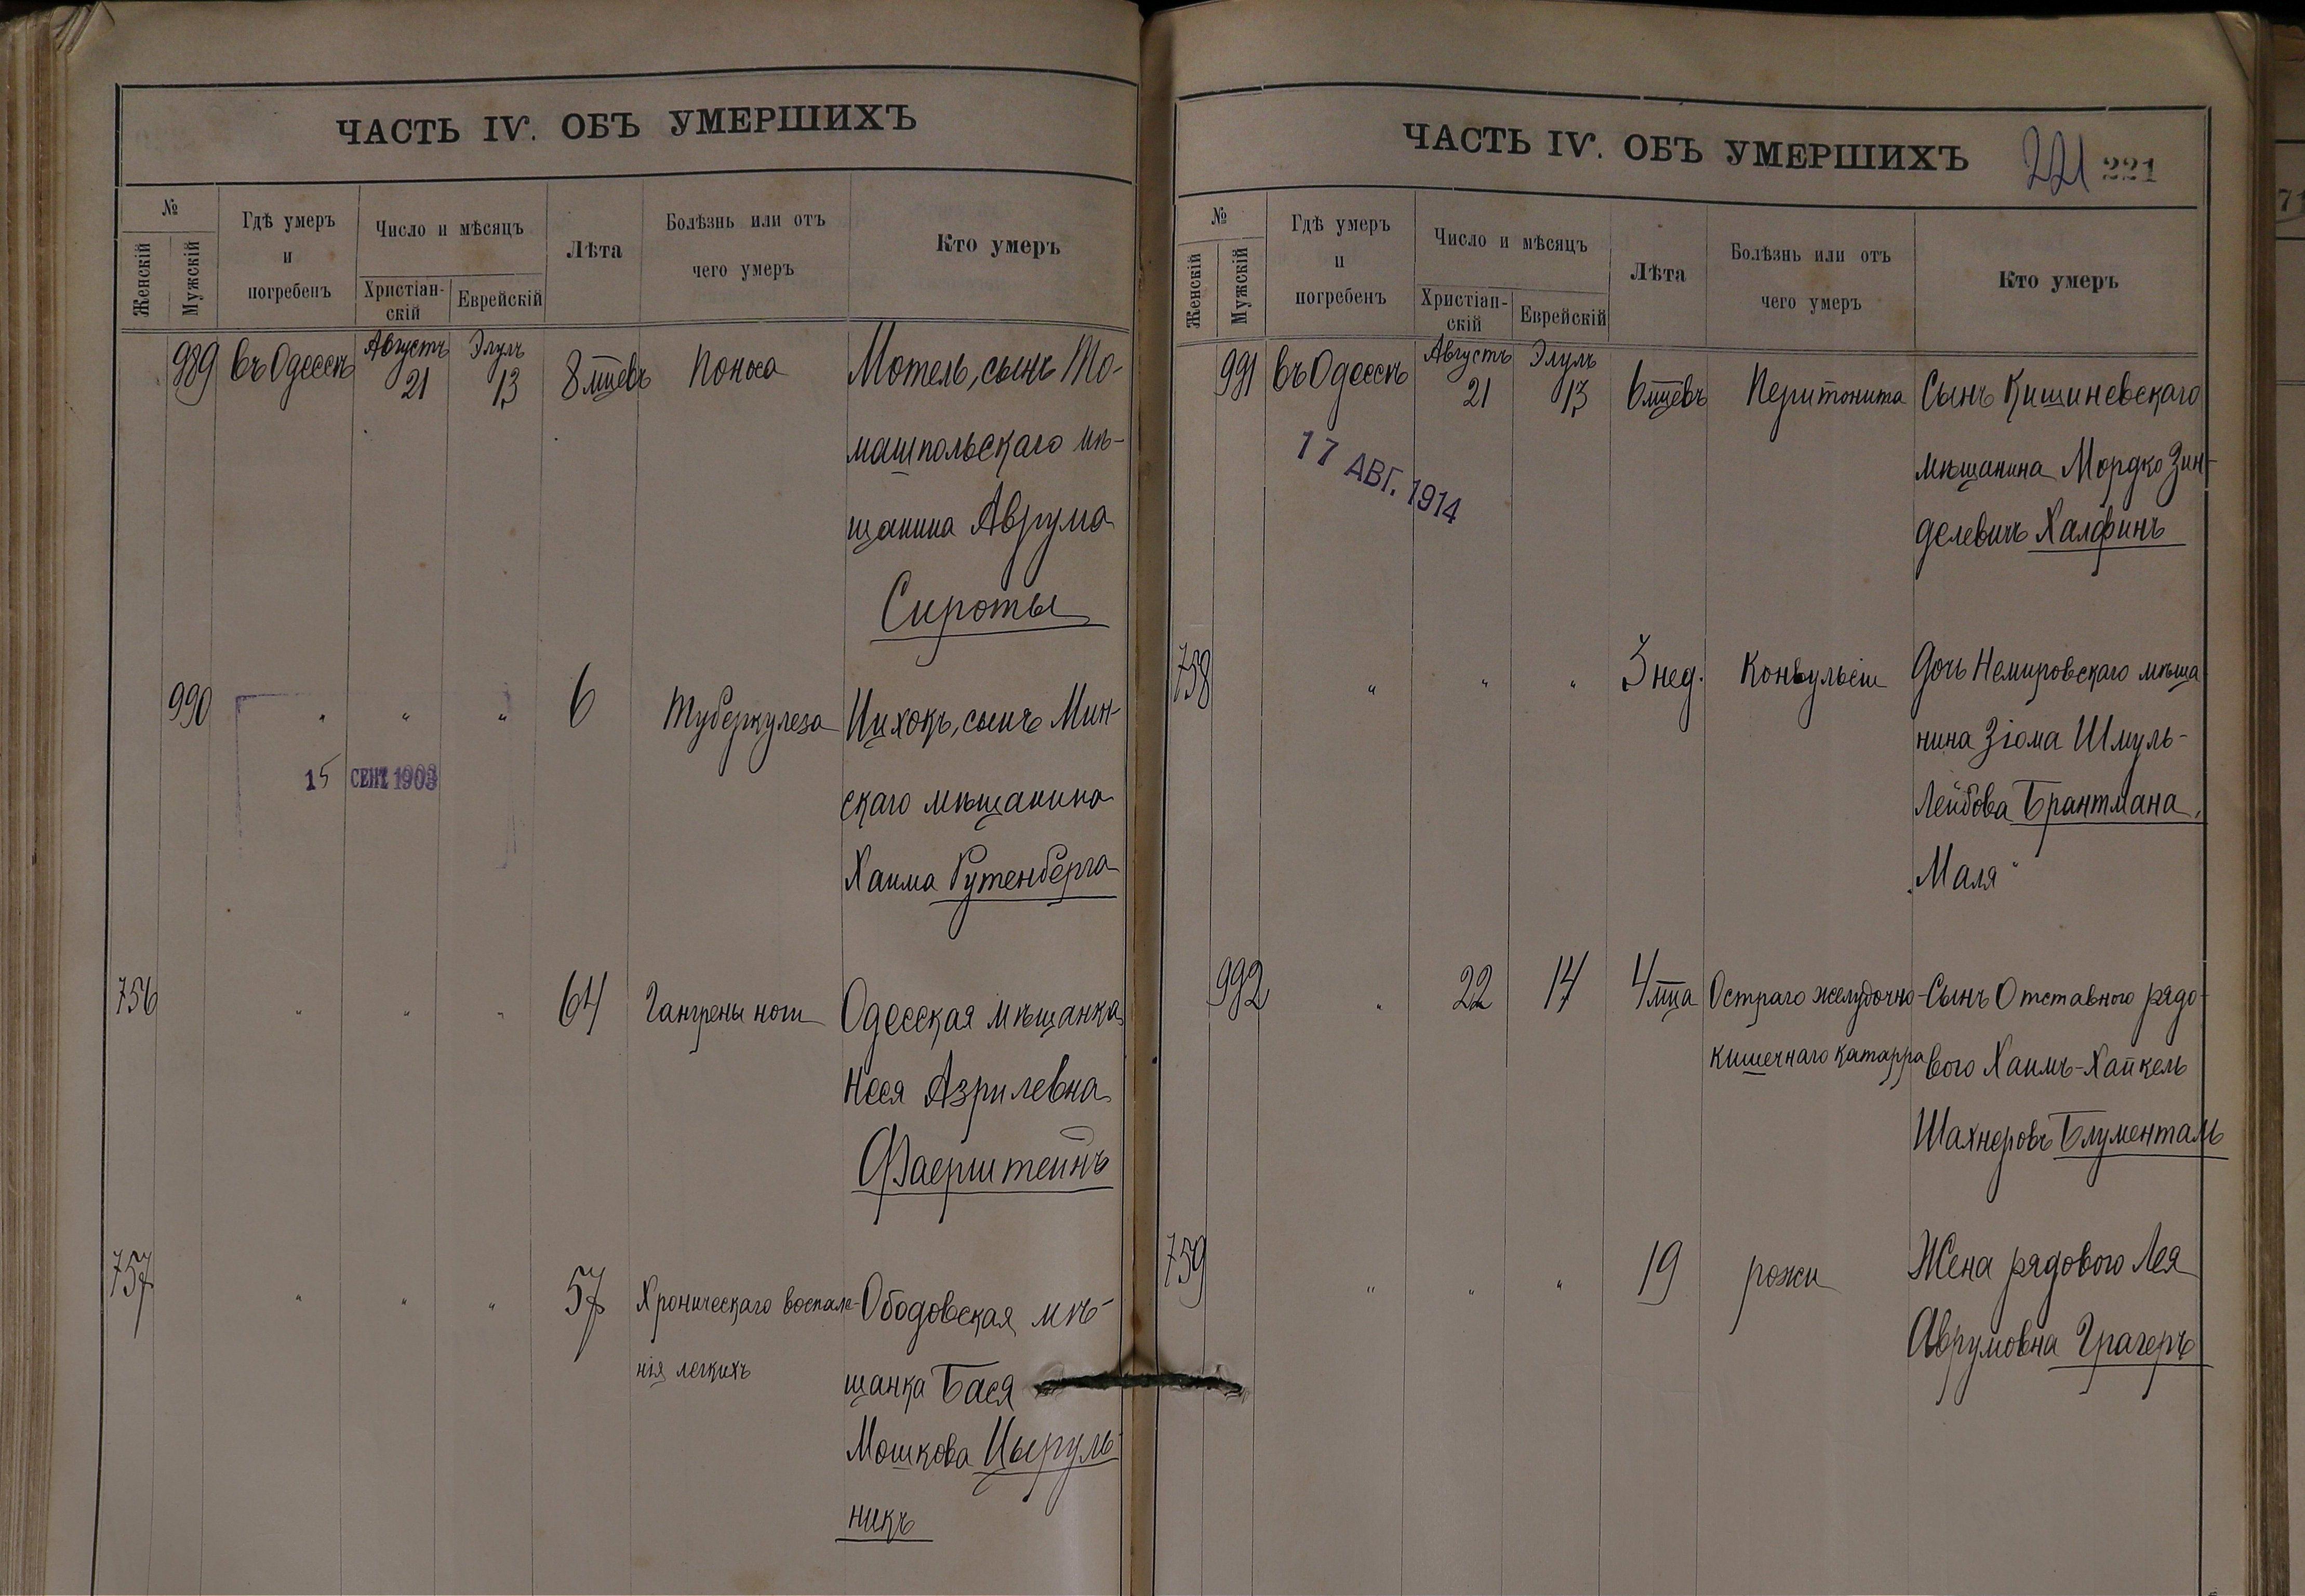 ЧАСТЬ IV. ОБЪ УМЕРШИХЪ
№
Женскій
Мужскій
Гдѣ умеръ
и
погребенъ
Число и мѣсяцъ
Христіан-
скій
Еврейскій
Лѣта
Болѣзнь или отъ
чего умеръ
Кто умеръ
989 въ Одессѣ Августъ 21 Элулъ 13 8 мцевъ Поноса Мотель, сынъ То-
машпольскаго мѣ-
щанина Аврума
Сироты
990 " " " 6 Туберкулеза Ицхокъ, сынъ Мин-
скаго мѣщанина
Хаима Рутенберга
15 СЕНТ 1903
756 " " " 64 Гангрены ноги Одесская мѣщанка
Нося Азрилевна
Фаерштейнъ
757 " " " 57 Хроническаго воспале- Ободовская мѣ-
нія легкихъ щанка Бася
Мошкова Цыруль-
никъ
ЧАСТЬ IV. ОБЪ УМЕРШИХЪ
221 221
№
Женскій
Мужскій
Гдѣ умеръ
и
погребенъ
Число и мѣсяцъ
Христіан-
скій
Еврейскій
Лѣта
Болѣзнь или отъ
чего умеръ
Кто умеръ
991 въ Одессѣ Августъ 21 Элулъ 13 6 мцевъ Перитонита Сынъ Кишиневскаго
мѣщанина Мордко Зин-
делевичъ Халфинъ
17 АВГ. 1914
758 " " " 3 нед. Конвульсіи Дочь Немировскаго мѣща
нина Зіома Шмуль-
Лейбова Брантмана,
"Маля"
992 " 22 14 4 мца Остраго желудочно- Сынъ Отставного рядо-
кишечнаго катарра вого Хаимъ-Хайкель
Шахнеровъ Блументаль
759 " " " 19 рожи Жена рядового Лея
Аврумовна Грагеръ